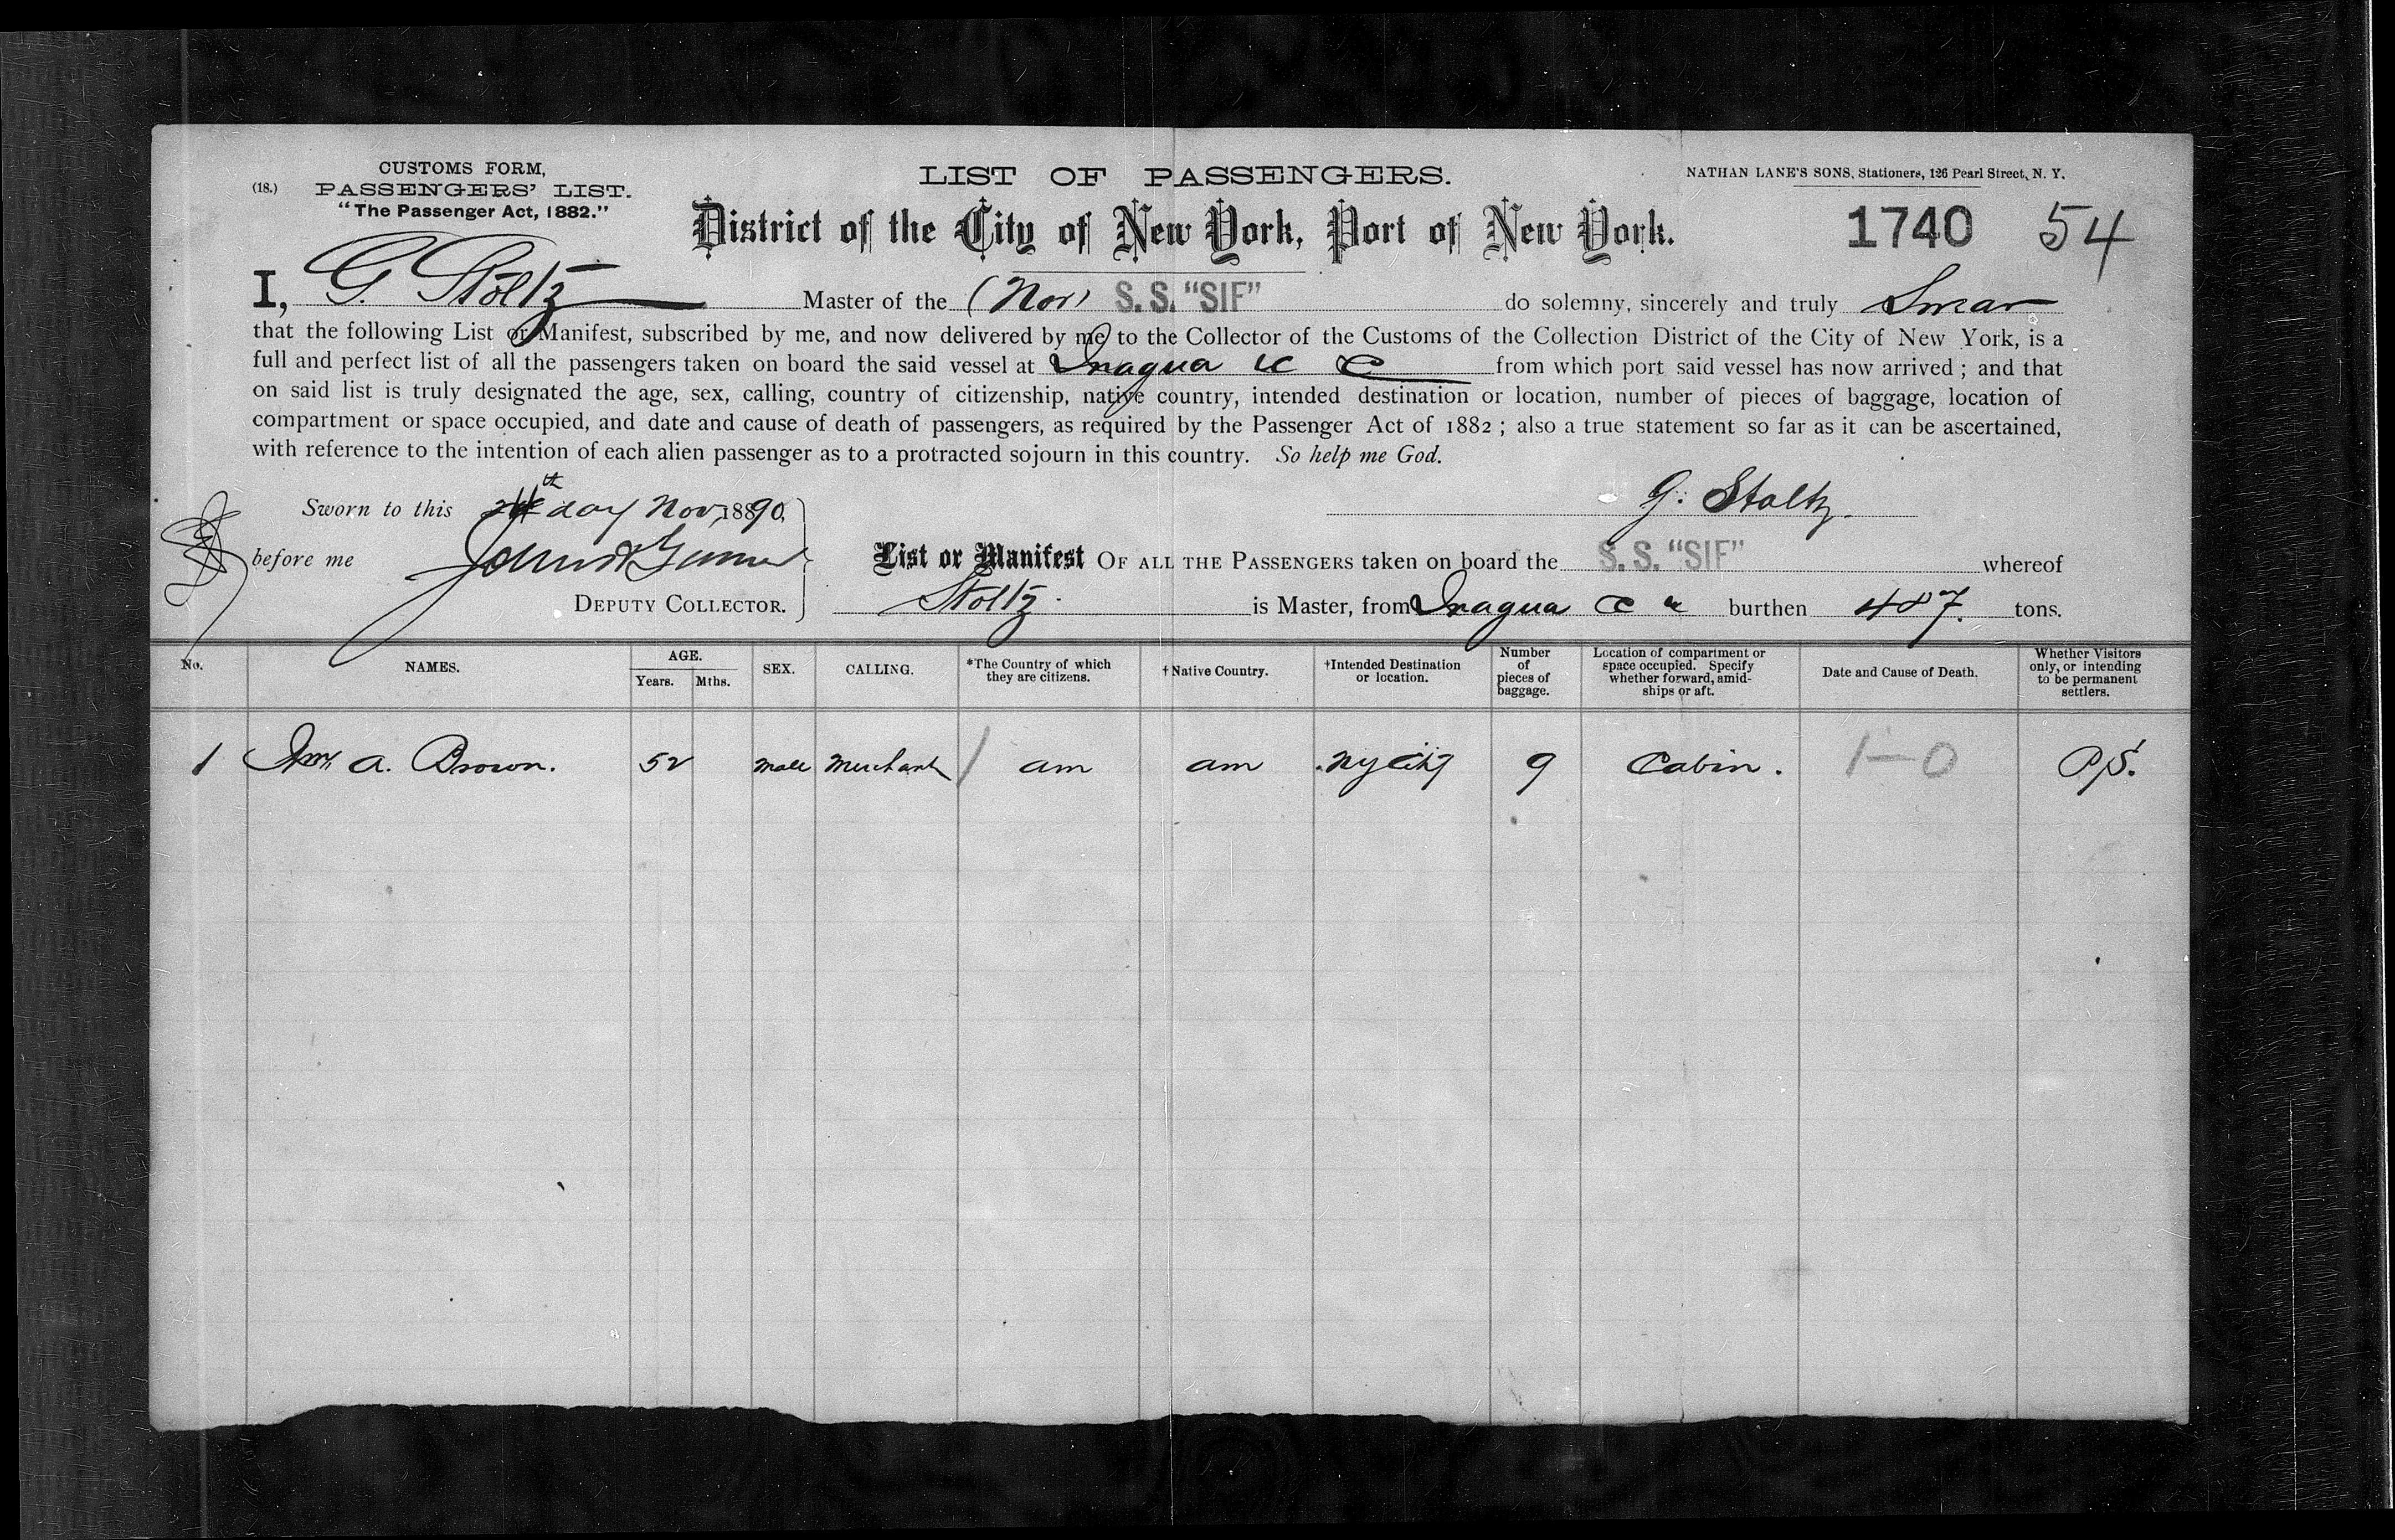 CUSTOMS FORM,
(18.) PASSENGERS' LIST.
"The Passenger Act, 1882."
LIST OF PASSENGERS.
NATHAN LANE'S SONS, Stationers, 126 Pearl Street, N. Y.
District of the City of New York, Port of New York.
1740 54
I, G. Stoltz Master of the (Nor) S. S. "SIF" do solemny, sincerely and truly Swear
that the following List or Manifest, subscribed by me, and now delivered by me to the Collector of the Customs of the Collection District of the City of New York, is a
full and perfect list of all the passengers taken on board the said vessel at Inagua from which port said vessel has now arrived ; and that
on said list is truly designated the age, sex, calling, country of citizenship, native country, intended destination or location, number of pieces of baggage, location of
compartment or space occupied, and date and cause of death of passengers, as required by the Passenger Act of 1882 ; also a true statement so far as it can be ascertained,
with reference to the intention of each alien passenger as to a protracted sojourn in this country. So help me God.
Sworn to this day Nov, 1890,
G. Stoltz.
before me
List or Manifest OF ALL THE PASSENGERS taken on board the S. S. "SIF" whereof
DEPUTY COLLECTOR.
Stoltz. is Master, from Inagua burthen 487. tons.
No. NAMES. AGE. Years. Mths. SEX. CALLING. *The Country of which they are citizens. †Native Country. †Intended Destination or location. Number of pieces of baggage. Location of compartment or space occupied. Specify whether forward, amid-ships or aft. Date and Cause of Death. Whether Visitors only, or intending to be permanent settlers.
1 A. Brown. 52 Male Merchant am am NY City 9 Cabin. 1-0 P/S.